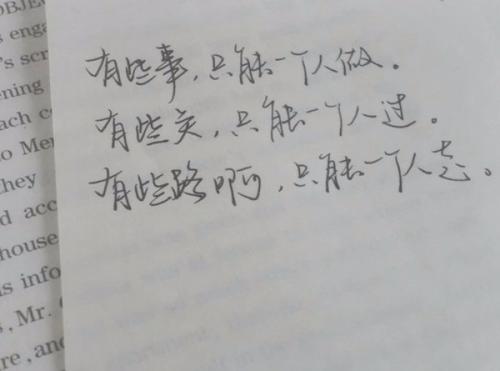 OBJE
s enga
's scr
ening
ach c
o Me
they
d acc
house
s info
, Mr.
re, and
有些事，只能一个人做。
有些关，只能一个人过。
有些路啊，只能一个人走。